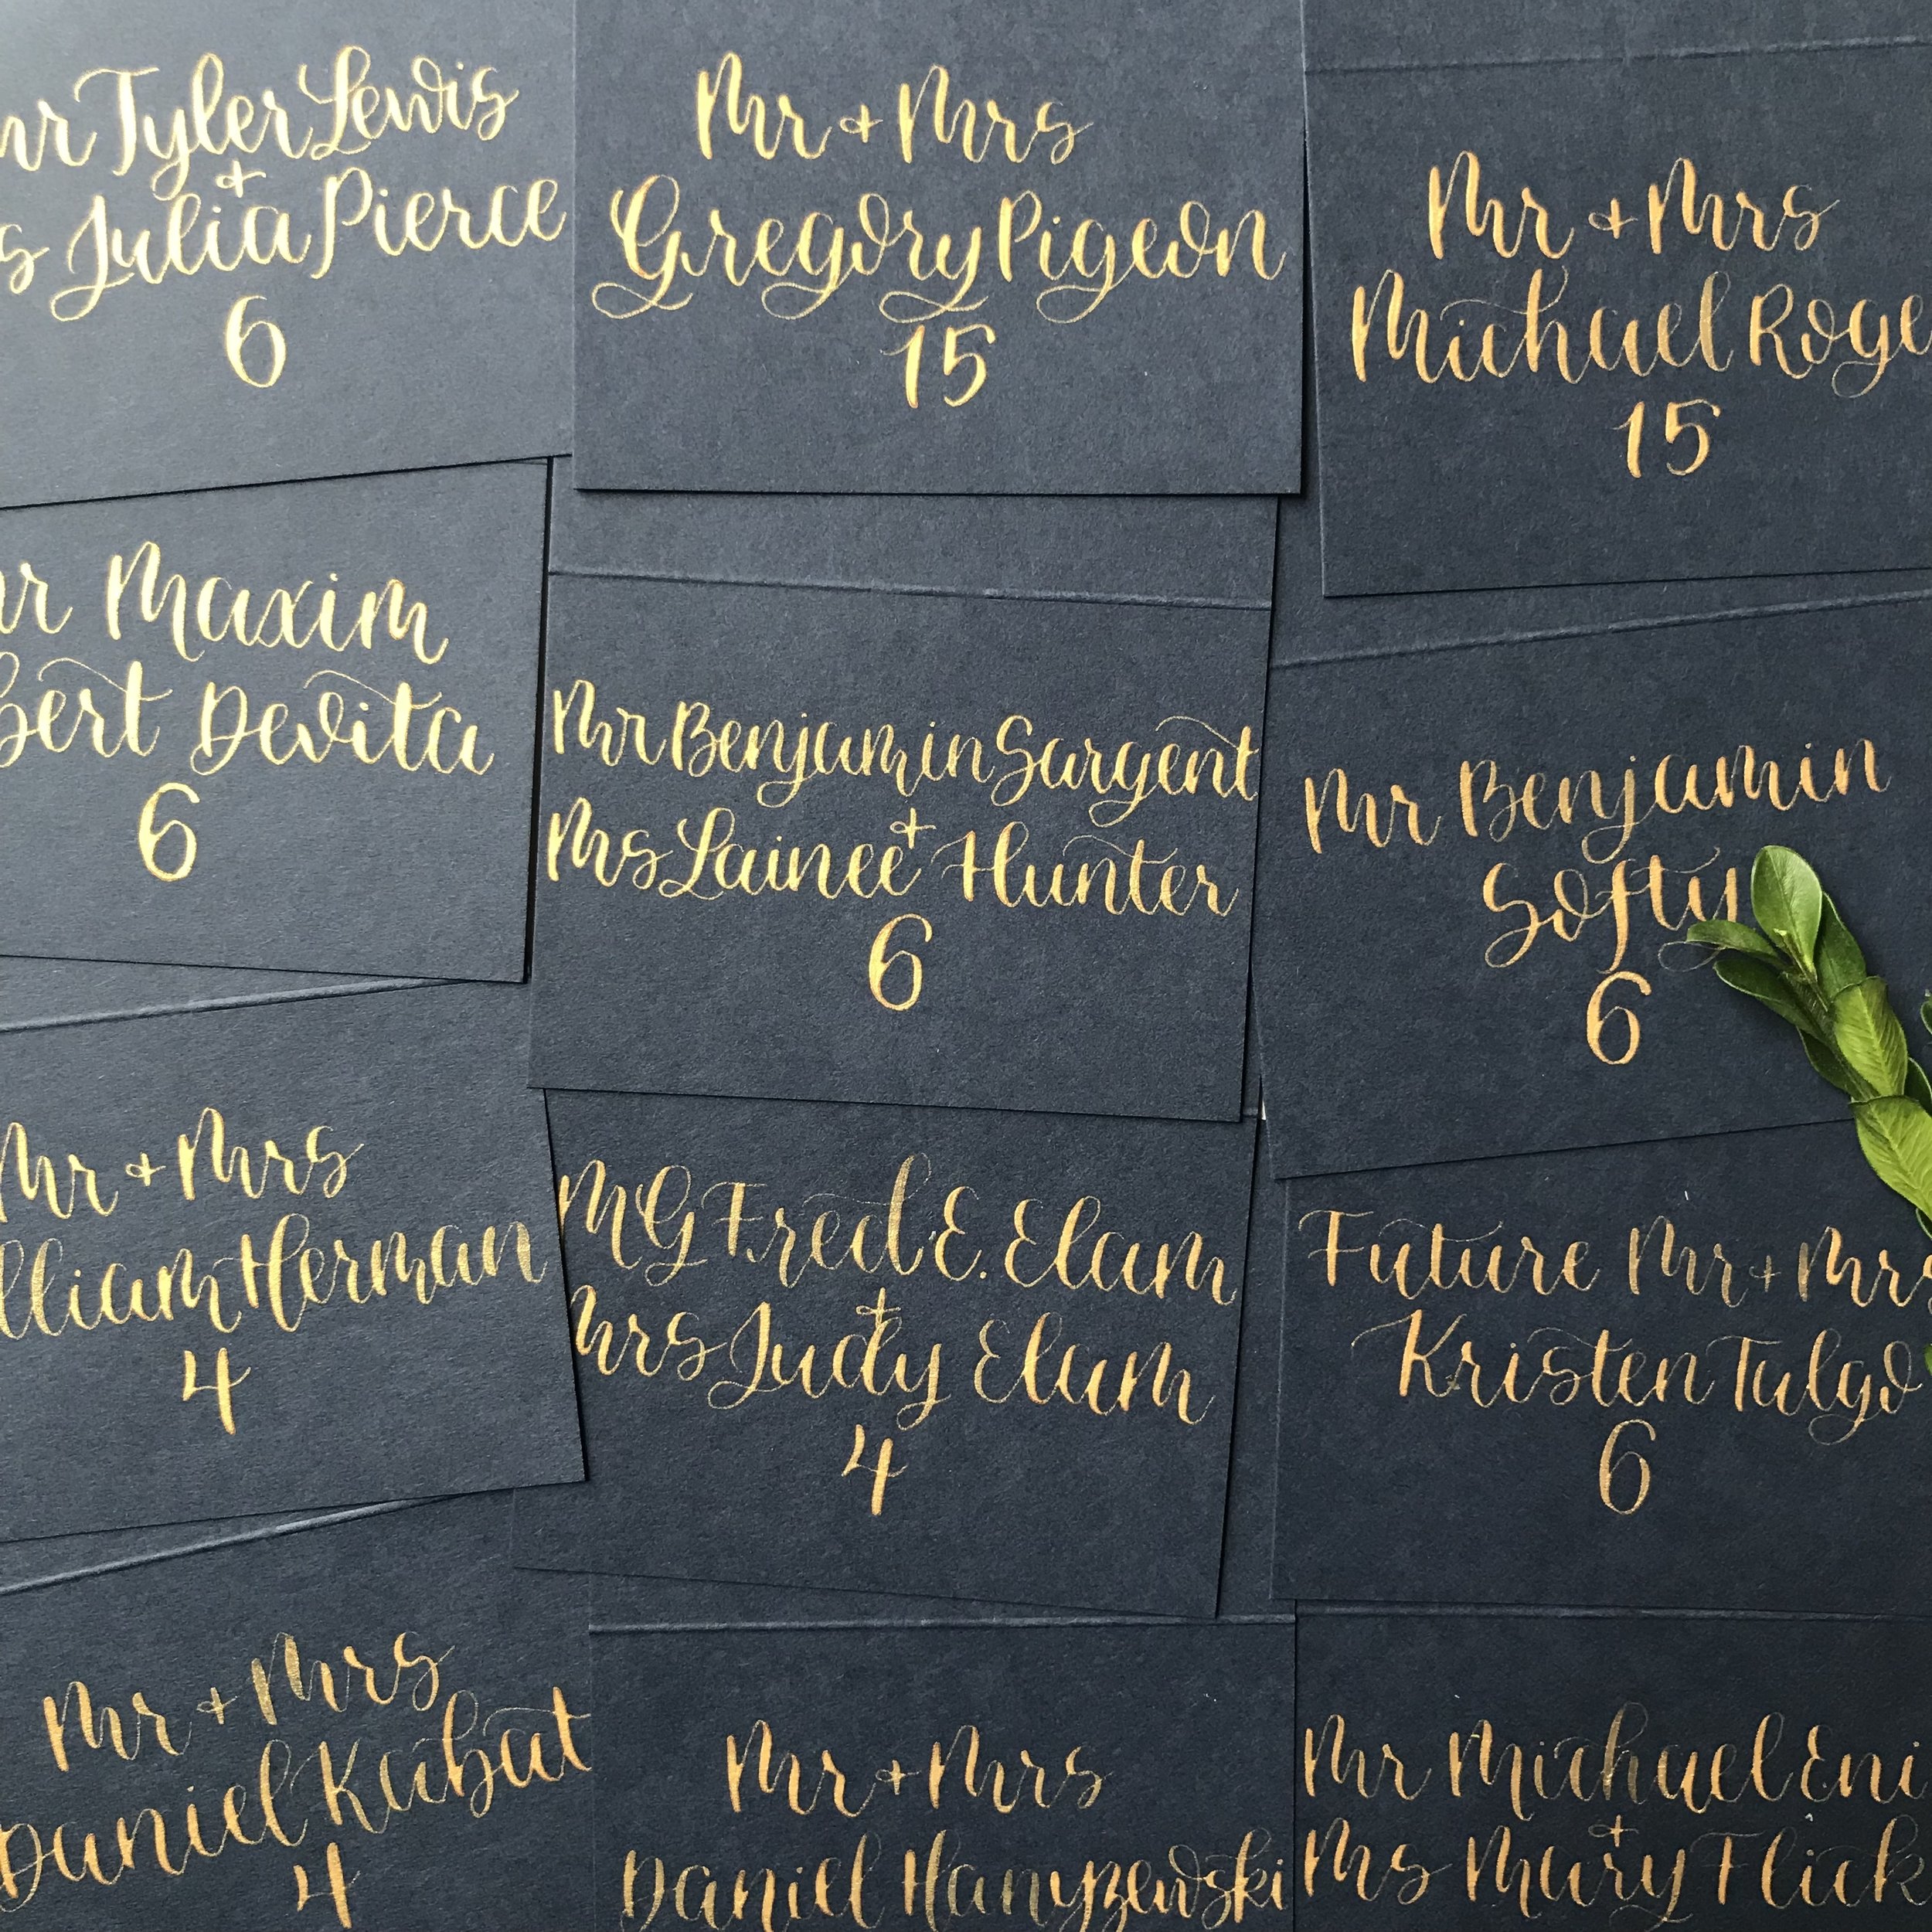 Mr Tyler Lewis
+
Julia Pierce
6
Mr + Mrs
Gregory Pigeon
15
Mr + Mrs
Michael Roge
15
Mr Maxim
bert Devita
6
Mr Benjamin Sargent
+
Ms Lainee Hunter
6
Mr Benjamin
Softy
6
Mr + Mrs
lliam Herman
4
MG Fred E. Elam
+
Mrs Judy Elam
4
Future Mr + Mrs
Kristen Tulgo
6
Mr + Mrs
Daniel Kubat
4
Mr + Mrs
Daniel Hanyzewski
Mr Michael Eni
+
Ms Mary Flick